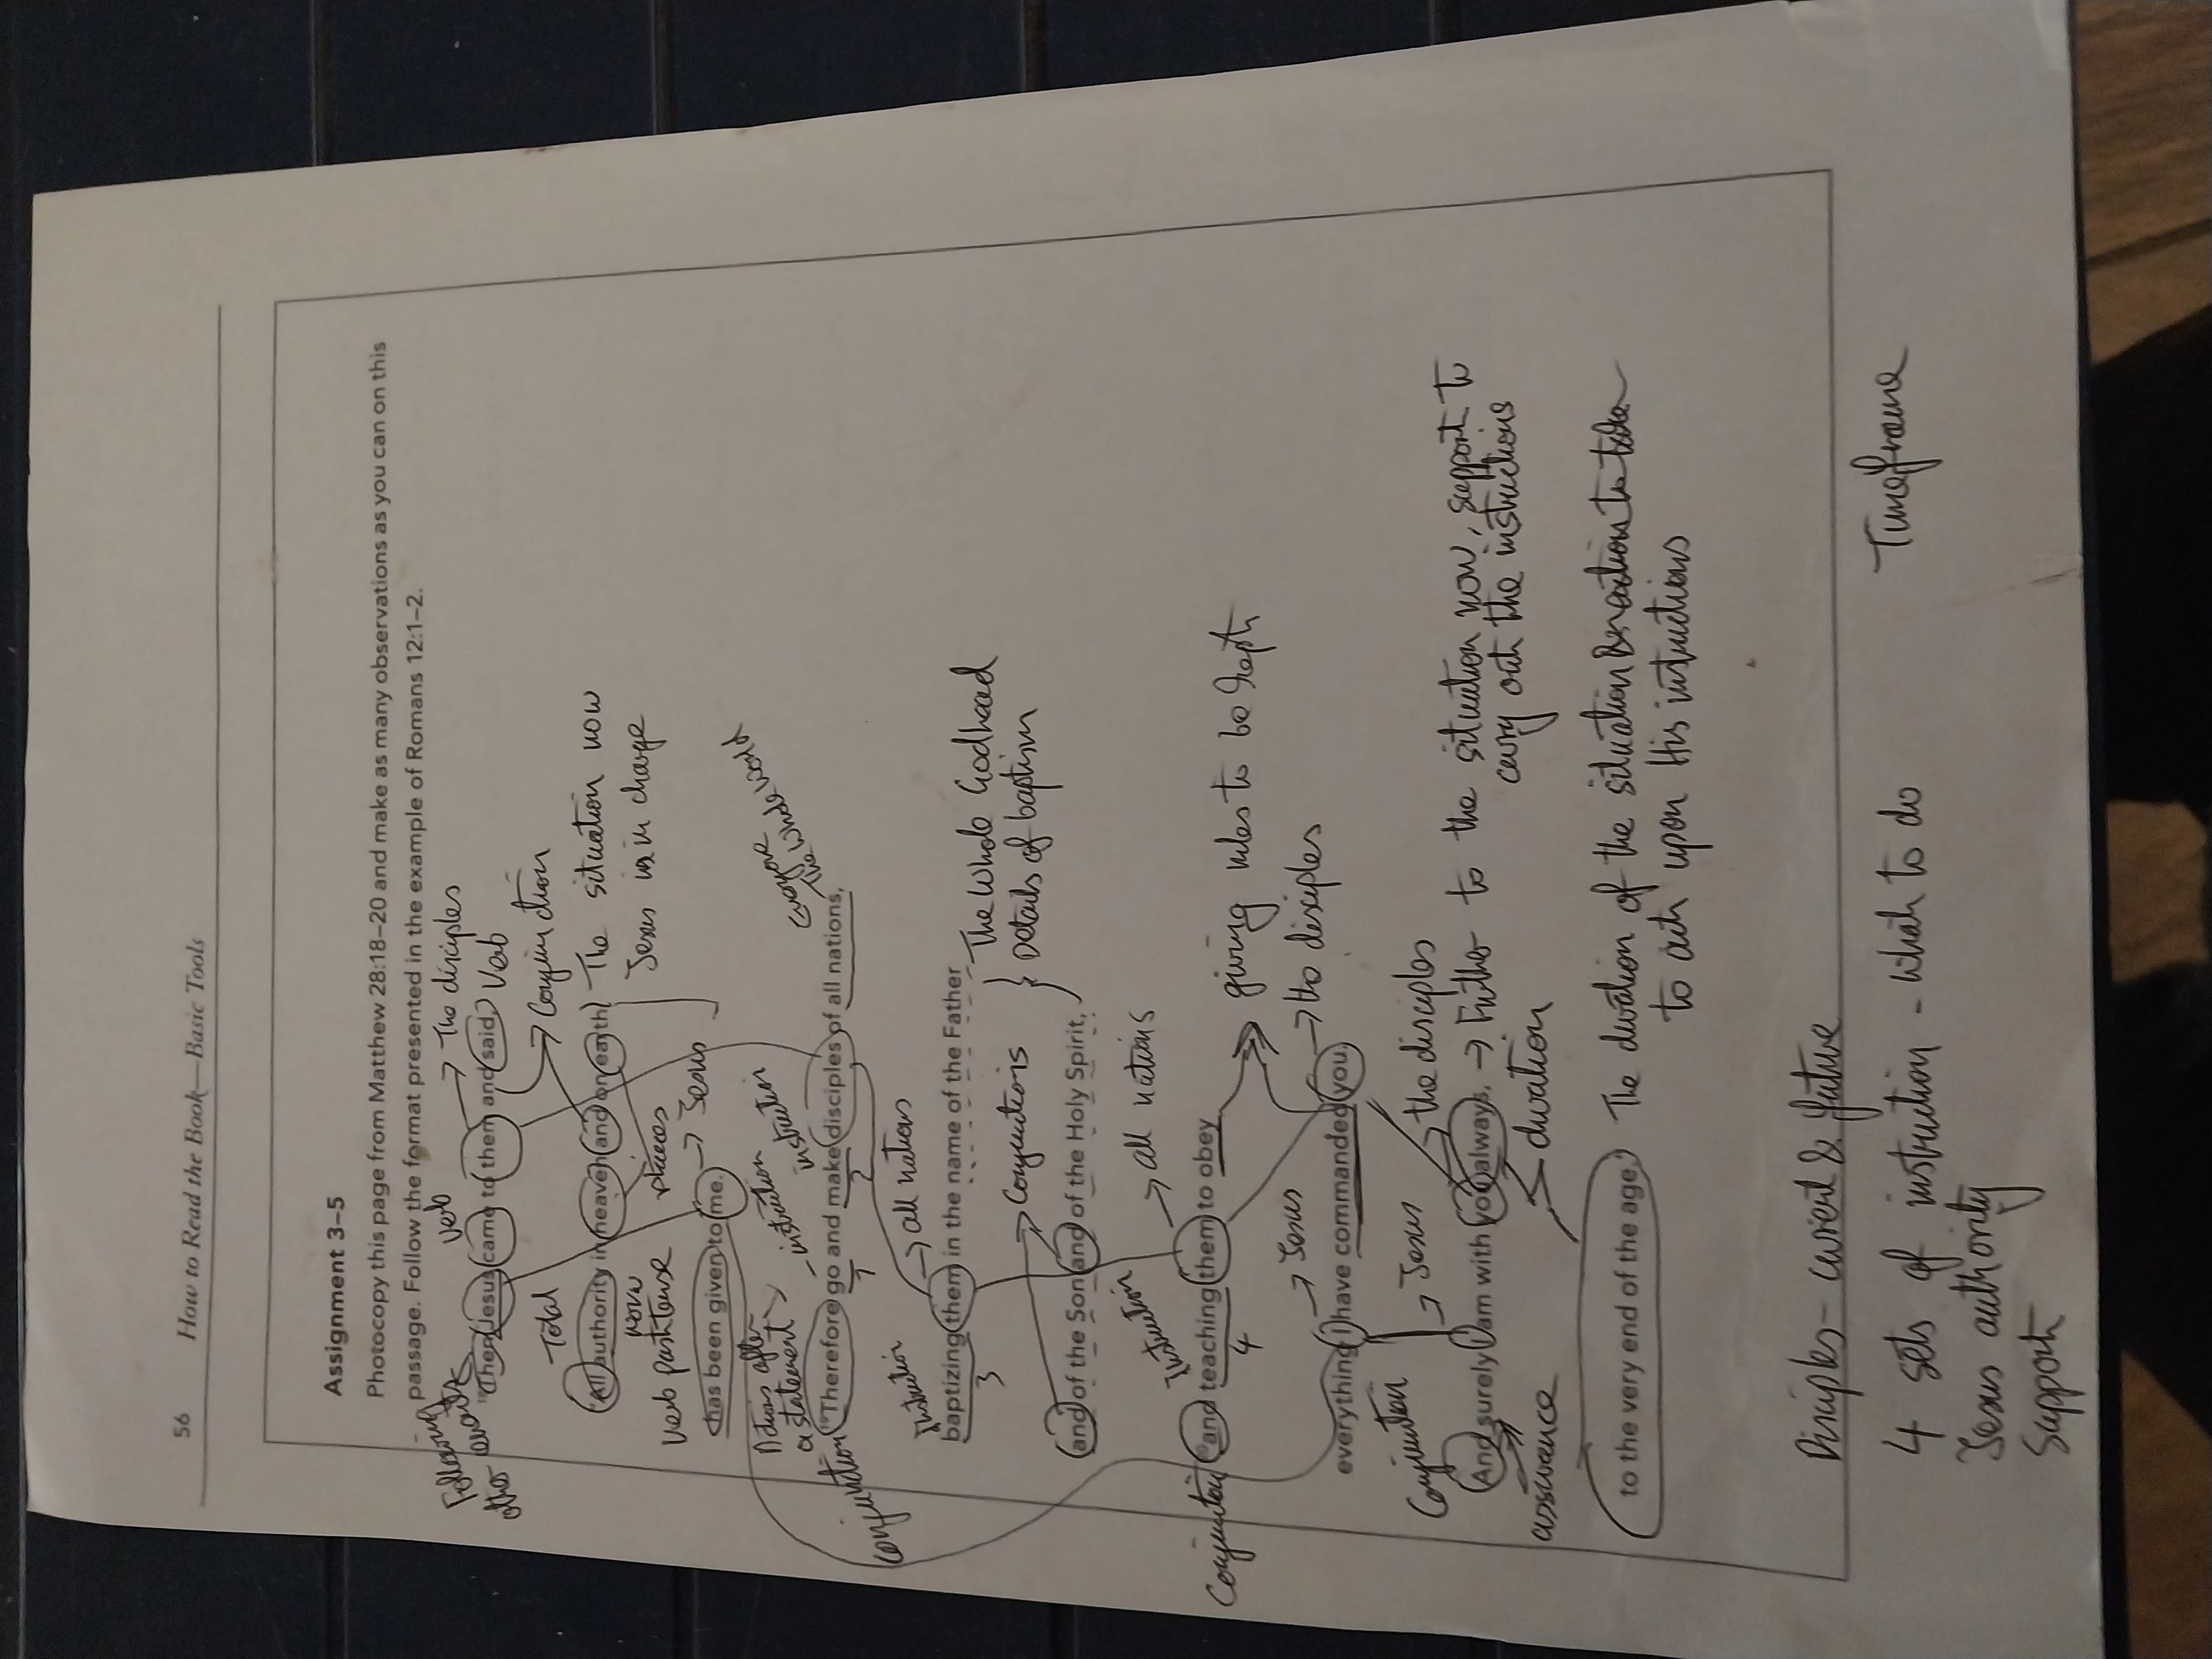 56 How to Read the Book—Basic Tools
Assignment 3–5
Photocopy this page from Matthew 28:18–20 and make as many observations as you can on this
passage. Follow the format presented in the example of Romans 12:1–2.
Following
other events
verb
→ The disciples
18Then Jesus came to them and said, Verb
→ Conjunction
Total
"All authority in heaven and on earth - The situation now
Jesus is in charge
verb past tense
places
has been given to me. → Jesus
Actions after
a statement
- instruction
instruction
everyone
the whole world
Conjunction 19Therefore go and make disciples of all nations,
1 2
Instruction
→ all nations
baptizing them in the name of the Father - The whole Godhead
3
→ Conjunctions } Details of baptism
and of the Son and of the Holy Spirit,
Instruction → all nations
Conjunction 20and teaching them to obey
4
giving rules to be kept
→ Jesus
everything I have commanded you. → the disciples
Conjunction → Jesus → the disciples
And surely I am with you always, → Further to the situation now, support to
carry out the instructions
assurance
duration
to the very end of the age." The duration of the situation & action to take
to act upon His instructions
Disciples - current & future
4 sets of instruction - what to do Timeframe
Jesus authority
Support